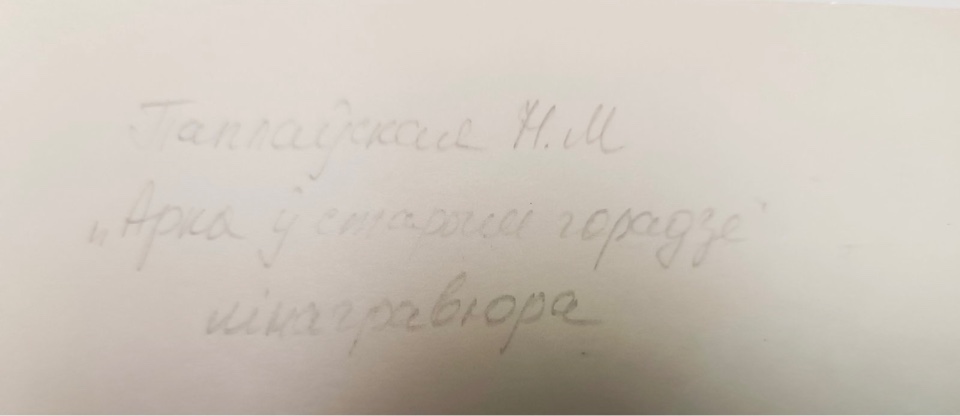 Паплаўская Н.М
„Арка ў старым горадзе“
лінагравюра